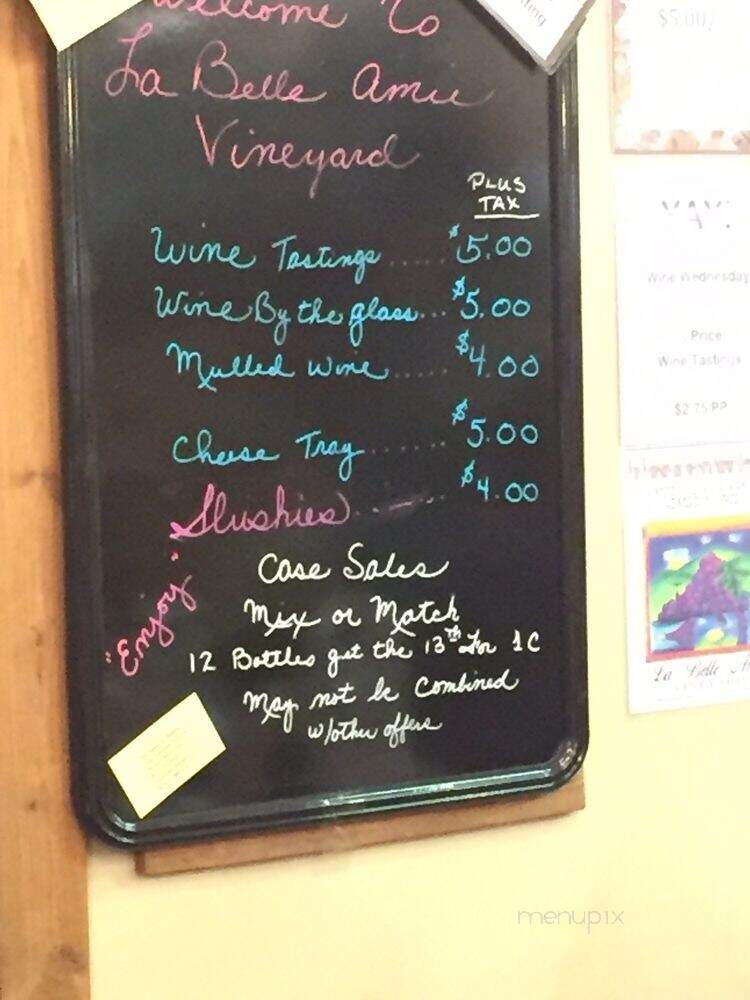 Welcome To
La Belle Amie
Vineyard
PLUS
TAX
Wine Tastings ..... $5.00
Wine By the glass... $5.00
Mulled wine ..... $4.00
Cheese Tray ....... $5.00
Slushies ....... $4.00
"Enjoy"
Case Sales
Mix or Match
12 Bottles get the 13th for 1¢
May not be Combined
w/other offers
$5.00/
Wine Wednesday
Price
Wine Tastings
$2.75/PP
La Belle
menupix